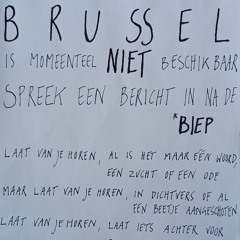 BRUSSEL
IS MOMEENTEEL NIET BESCHIKBAAR
SPREEK EEN BERICHT IN NA DE
*BIEP
LAAT VAN JE HOREN, AL IS HET MAAR ÉÉN WOORD,
EEN ZUCHT OF EEN ODE
MAAR LAAT VAN JE HOREN, IN DICHTVERS OF AL
EEN BEETJE AANGESCHOTEN
LAAT VAN JE HOREN, LAAT IETS ACHTER VOOR